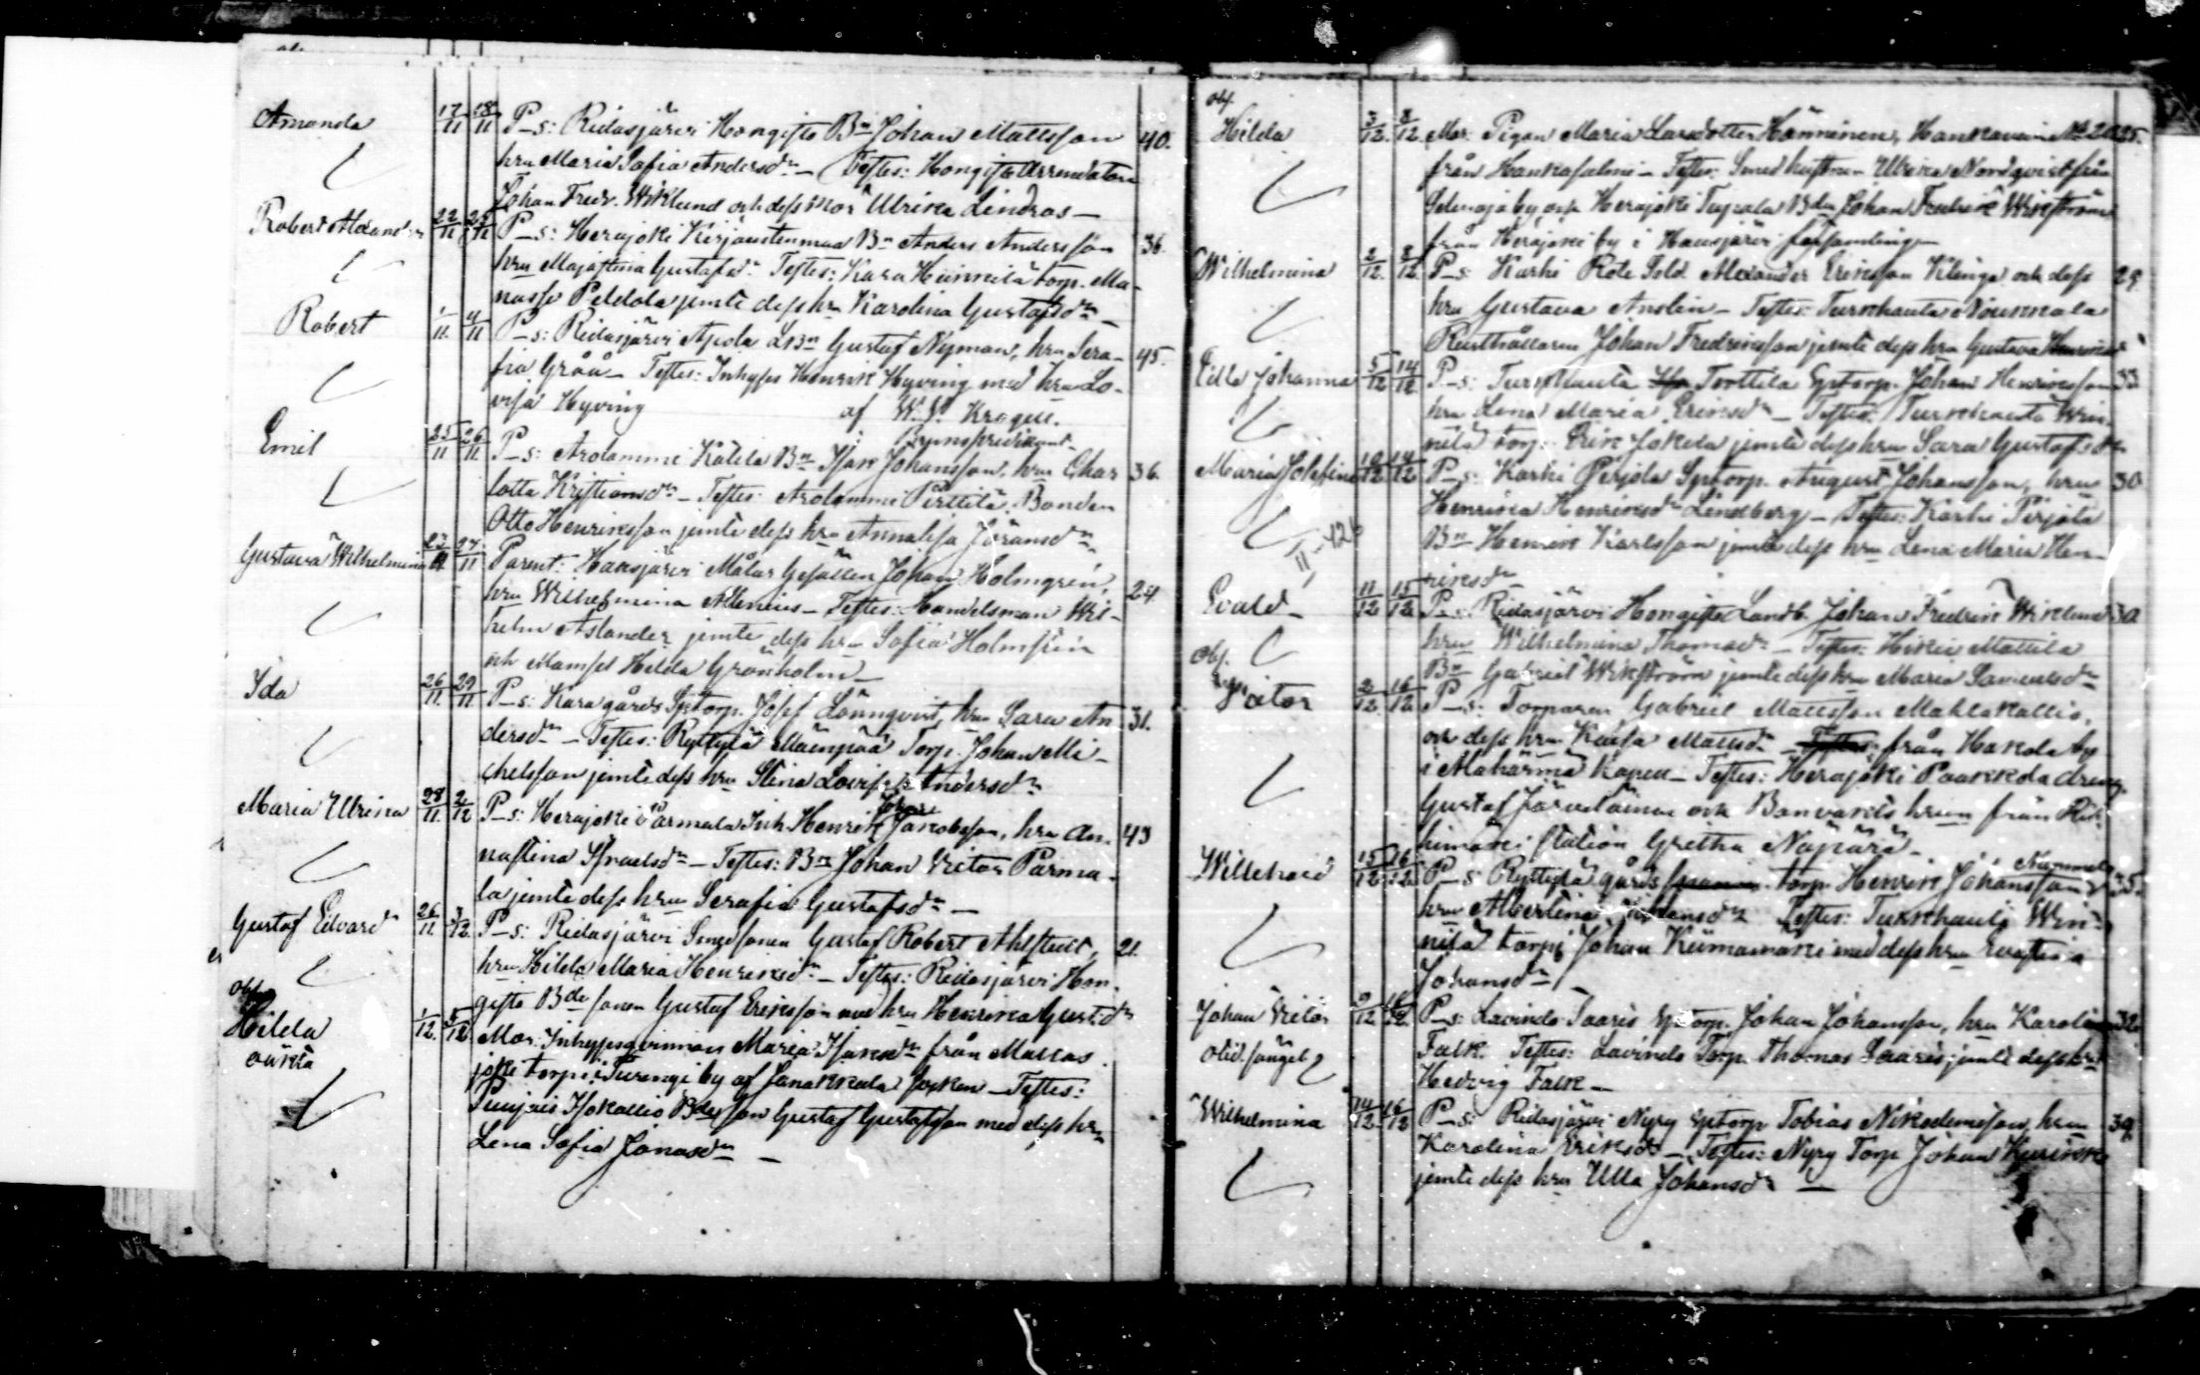 Amanda 17/11 18/11 P_s: Ridasjärvi Hongisto Bn Johan Mattsson 40.
hru Maria Sofia Andersdr _ Testes: Hongisto Arrendatorn
Johan Fredr. Wiklund och dess mor Ulrika Lindroos _
Robert Alexander 22/11 25/11 P_s: Herajoki Kirjaustenmaa Bn Anders Andersson 36.
hru Majastina Gustafsdr Testes: Kara Heinnilä torp. Ma-
nasse Peldola jemte dess hru Karolina Gustafsdr _
Robert 1/11 4/11 P_s: Ridasjärvi Ajola LBn Gustaf Nyman, hru Sera- 45.
fia Gråå _ Testes: Inhyses Henrik Hyving med hru Lo-
visa Hyving af W. S. Krogell.
Emil 25/11 26/11 P_s: Arolammi Kätilä Bn Isak Johansson, hru Char 36.
lotta Kristiansdr _ Testes: Arolammi Perttilä Bonden
Otto Henriksson jemte dess hru Annalisa Göransdr
Gustava Wilhelmina 23/11 27/11 Parent: Hausjärvi Målar Gesällen Johan Holmgren, 24
hru Wilhelmina Allenius _ Testes: Handelsman Wil-
helm Aslander jemte dess hru Sofia Holmgren
och Mamsel Hilda Grönholm _
Ida 26/11 29/11 P_s: Kara gårds Sptorp. Josef Lönnqvist, hru Sara An 31.
dersdr _ Testes: Ryttylä Mäenpää Torp. Johan Mi-
chelsson jemte dess hru Stina Lovisa Andersdr
Maria Ulrika 28/11 2/12 P_s: Herajoki Parmala Inh. Henrik Jakobsson, hru An- 43
nastina Israelsdr _ Testes: Bn Johan Victor Parma-
la jemte dess hru Serafia Gustafsdr _
Gustaf Edvard 26/11 3/12 P_s: Ridasjärvi Smedsonen Gustaf Robert Ahlstedt, 21.
hru Hilda Maria Henriksdr _ Testes: Ridasjärvi Hon-
gisto Bde sonen Gustaf Eriksson med hru Henrika Gustdr
Obs.
Hilda 1/12 5/12 Mor: Inhysesqvinnan Maria Isaksdr från Mallas
oäkta
joki torp i Turengi by af Janakkala socken _ Testes:
Puujois Isokallio Bdeson Gustaf Gustafsson med dess hru
Lena Sofia Jonasdr _
obs.
Hilda 3/12 8/12 Mor: Pigan Maria Larsdotter Hänninen, Hankavesi No 20 25.
från Hankasalmi _ Testes: Smed hustrun Ulrika Nordqvist från
by och Herajoki Bdn Johan Fredrik Wikström
från Herajoki by i Hausjärvi församling _
Wilhelmina 2/12 8/12 P_s: Karhi Rote Sold. Alexander Eriksson Klinga och dess 29
hru Gustava Anslin _ Testes: Turkhauta Nounnala
Rusthållaren Johan Fredriksson jemte dess hru Gustava
Edla Johanna 5/12 14/12 P_s: Turkhauta Torttila Sptorp. Johan Henriksson 33
hru Lena Maria Eriksdr _ Testes: Turkhauta Win-
nilä torp. Erik Jokela jemte dess hru Sara Gustafsdr
Maria Josefina 10/12 14/12 P_s: Karhi Perjola Sptorp. August Johansson, hru 30
Henrika Henriksdr Lindberg _ Testes: Karhi Perjola
Bn Henrik Karlsson jemte dess hru Lena Maria Hen-
riksdr
II-426
Evald 11/12 15/12 P_s: Ridasjärvi Hongisto Landb. Johan Fredrik Wiklund 30
hru Wilhelmina Thomasdr _ Testes: Hikiä Mattila
Bn Gabriel Wikström jemte dess hru Maria Samuelsdr
Obs.
Victor 2/12 16/12 P_s: Torparen Gabriel Mattsson Mahlakallio,
och dess hru Kaisa Mattsdr _ från Hakola by
i Alahärmä kapell _ Testes: Herajoki Paakkola dreng
Gustaf Järveläinen och Banvakts hrun från Rii-
himäki station Gretha Näpärä _
Willehard 15/12 16/12 P_s: Ryttylä gårds torp. Henrik Johansson Nummela 35.
hru Albertina Testes: Turkhauta Win-
nilä torp. Johan Kiimamäki med dess hru Evastina
Johansdr _
Johan Victor 9/12 16/12 P_s: Lavinto Saaris Sptorp. Johan Johansson, hru Karolina 32.
Falk. Testes: Lavinto Torp. Thomas Saaris jemte dess hru
Hedvig Falk _
Wilhelmina 14/12 16/12 P_s: Ridasjärvi Nyry Sptorp. Tobias Nikodemisson, hru 39
Karolina Eriksdr _ Testes: Nyry Torp. Johan
jemte dess hru Ulla Johansdr _